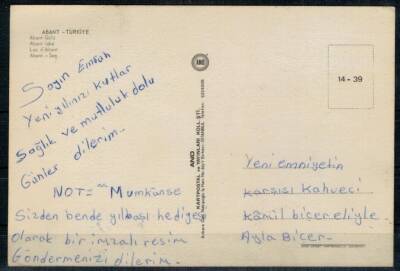 ABANT - TÜRKİYE
Abant Gölü
Abant lake
Lac d'Abant
Abant - See
Sayın Emrah
Yeni yılınızı kutlar
Sağlık ve mutluluk dolu
Günler dilerim.
NOT= Mümkünse
Sizden bende yılbaşı hediyesi
olarak bir imzalı resim
Göndermenizi dilerim.
AND
KARTPOSTAL ve YAYINLARI KOLL. ŞTİ.
14 - 39
Yeni emniyetin
karşısı Kahveci
kâmil biçer eliyle
Ayla Biçer